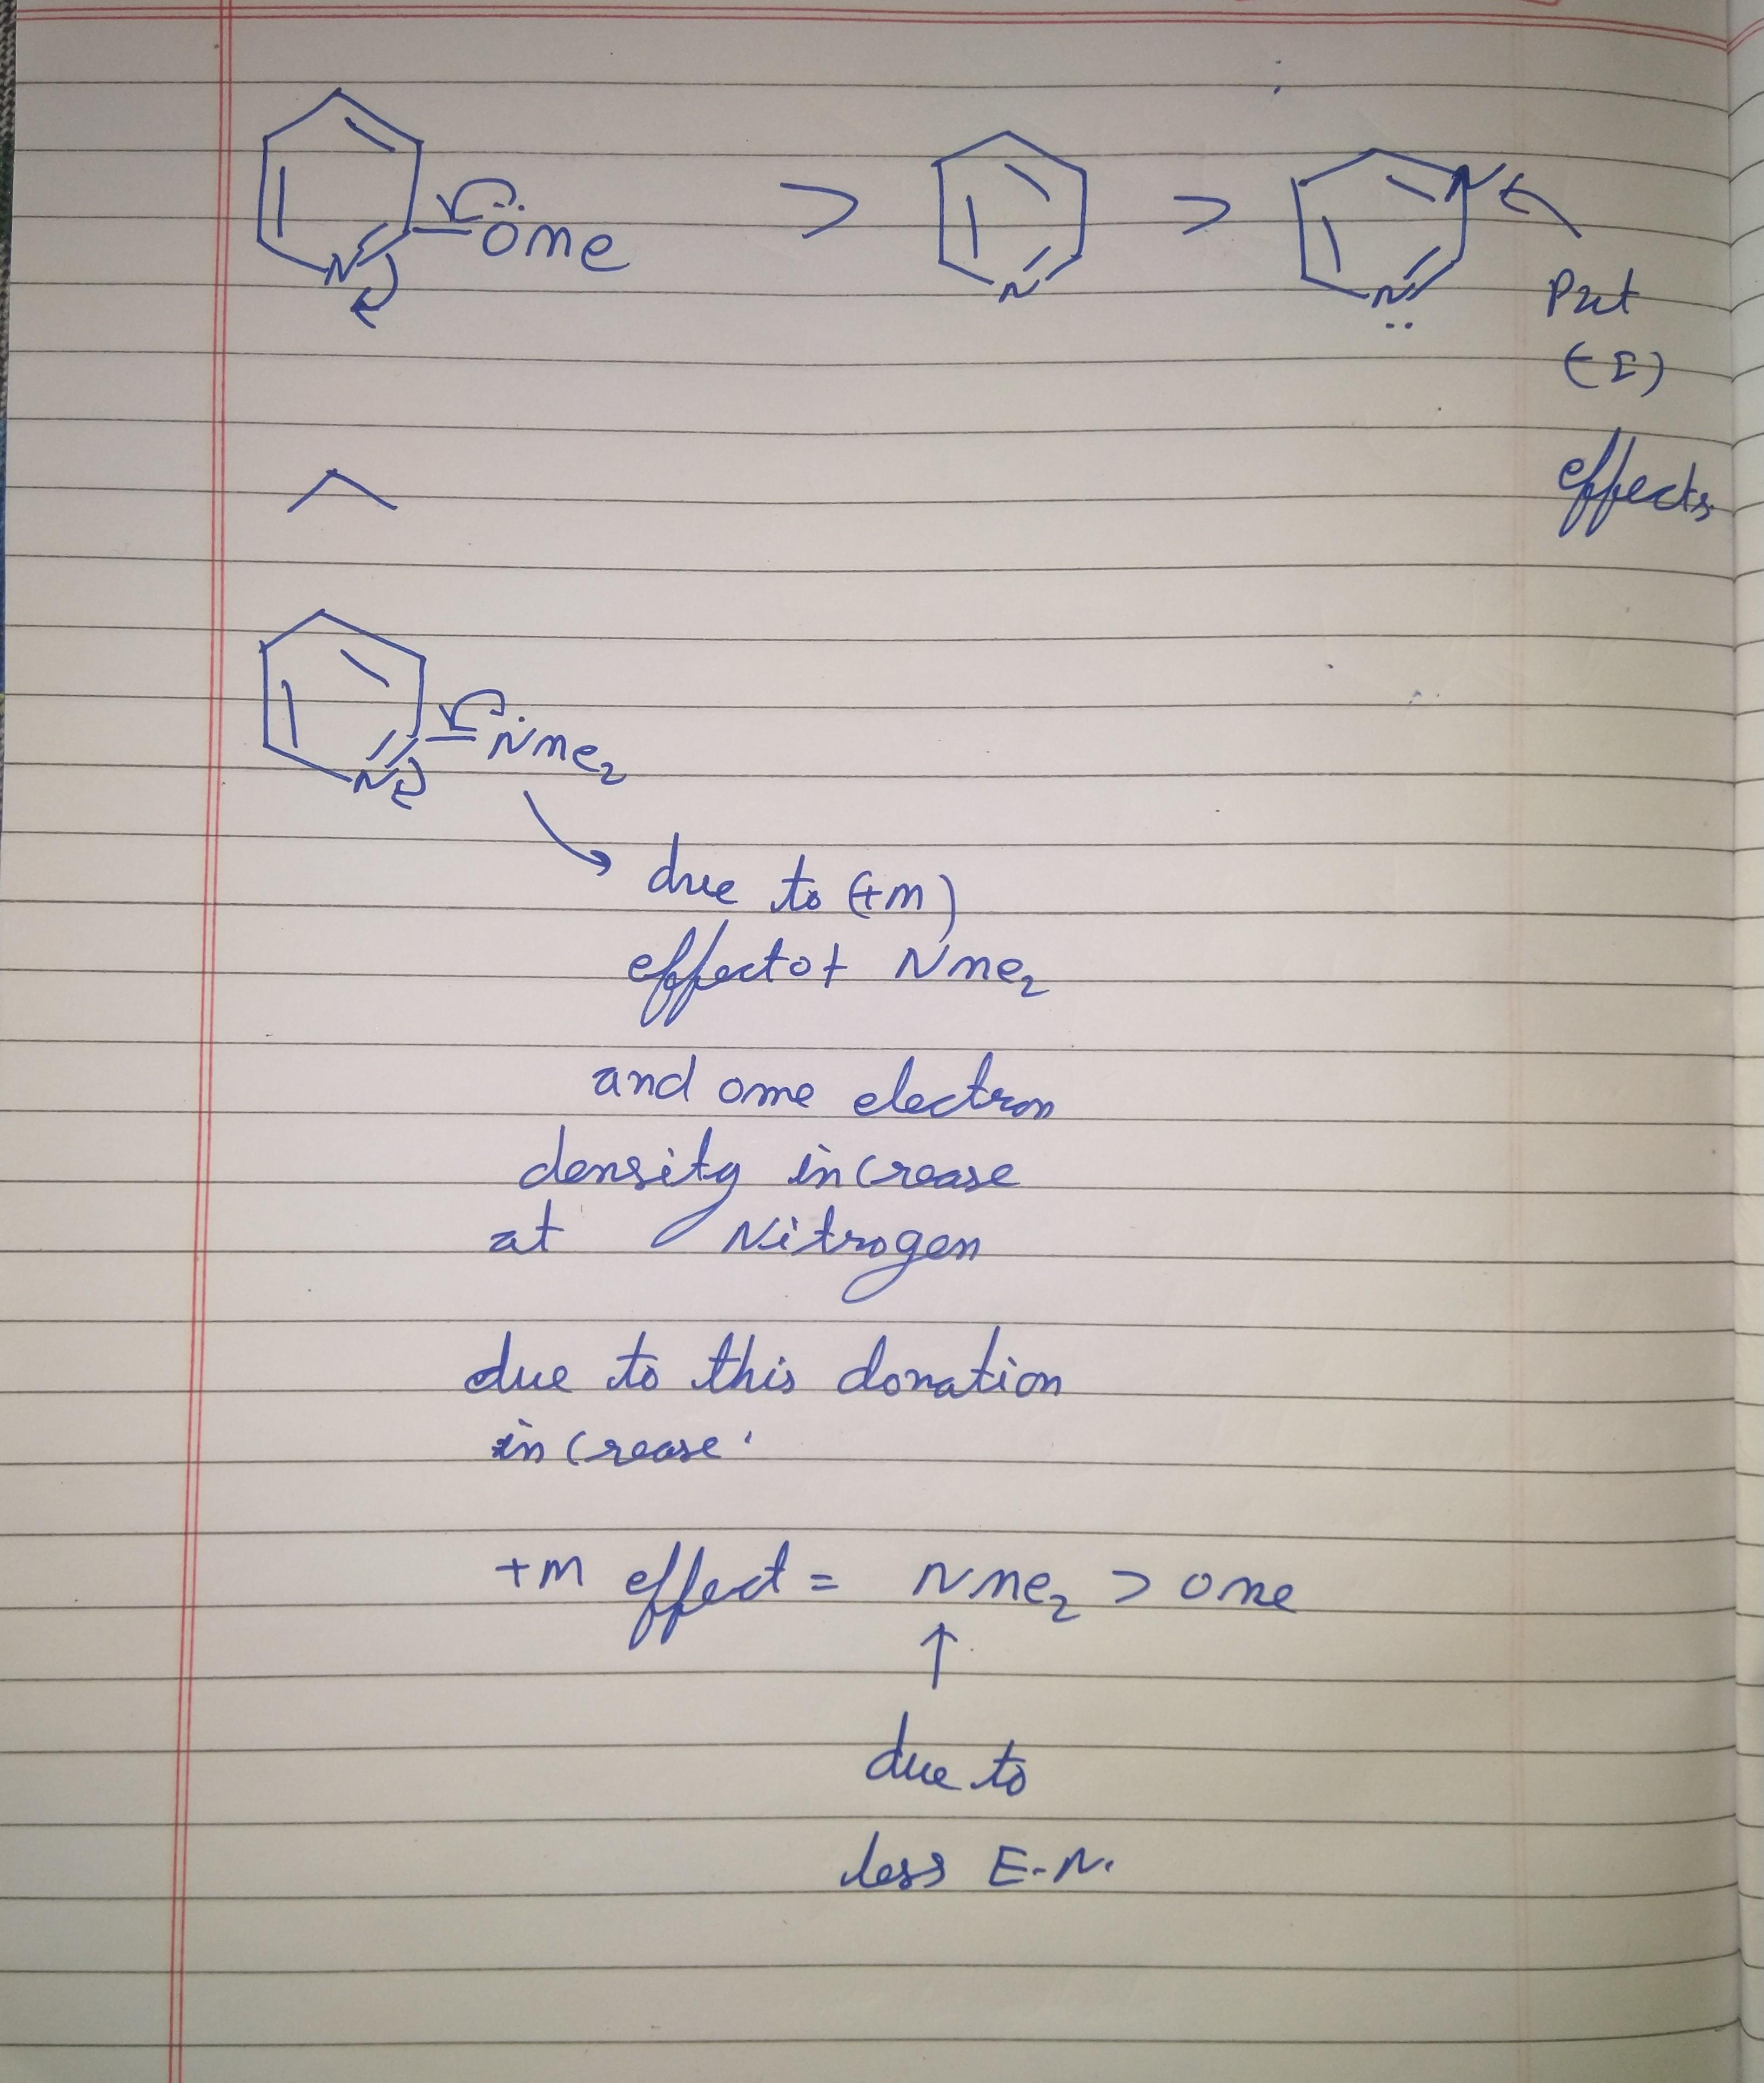 ÖMe > N > N
N
N
Put
(-I)
effects
^
NMe2
N
due to (+M)
effect of NMe2
and OMe electron
density increase
at Nitrogen
due to this donation
increase.
+M effect = NMe2 > OMe
↑
due to
less E-N.